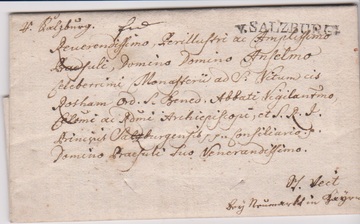 v. Salzburg.
V. SALZBURG
Reverendissimo Perillustri ac Amplissimo
Praesuli Domino Domino Anselmo
Celeberrimi Monasterii ad S. Vitum cis
Rosham Ord. S. Bened. Abbati Vigilantmo
Celsmi ac Rdmi Archiepiscopi et S. R. I.
Principis Salzburgensis Consiliario
Domino Praesuli Suo Venerandissimo.
St. Veit
bey Neumarkt in Bayrn